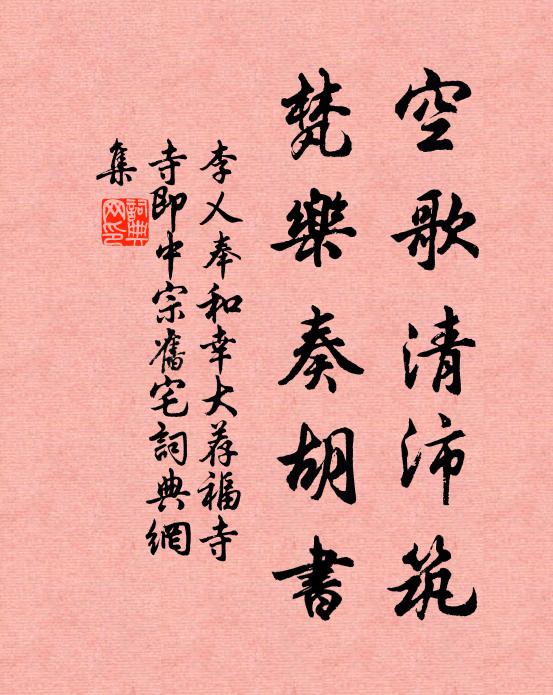 空歌清沛筑
梵樂奏胡書
李乂奉和幸大荐福寺
寺即中宗舊宅詞典網
集
詞典
网印